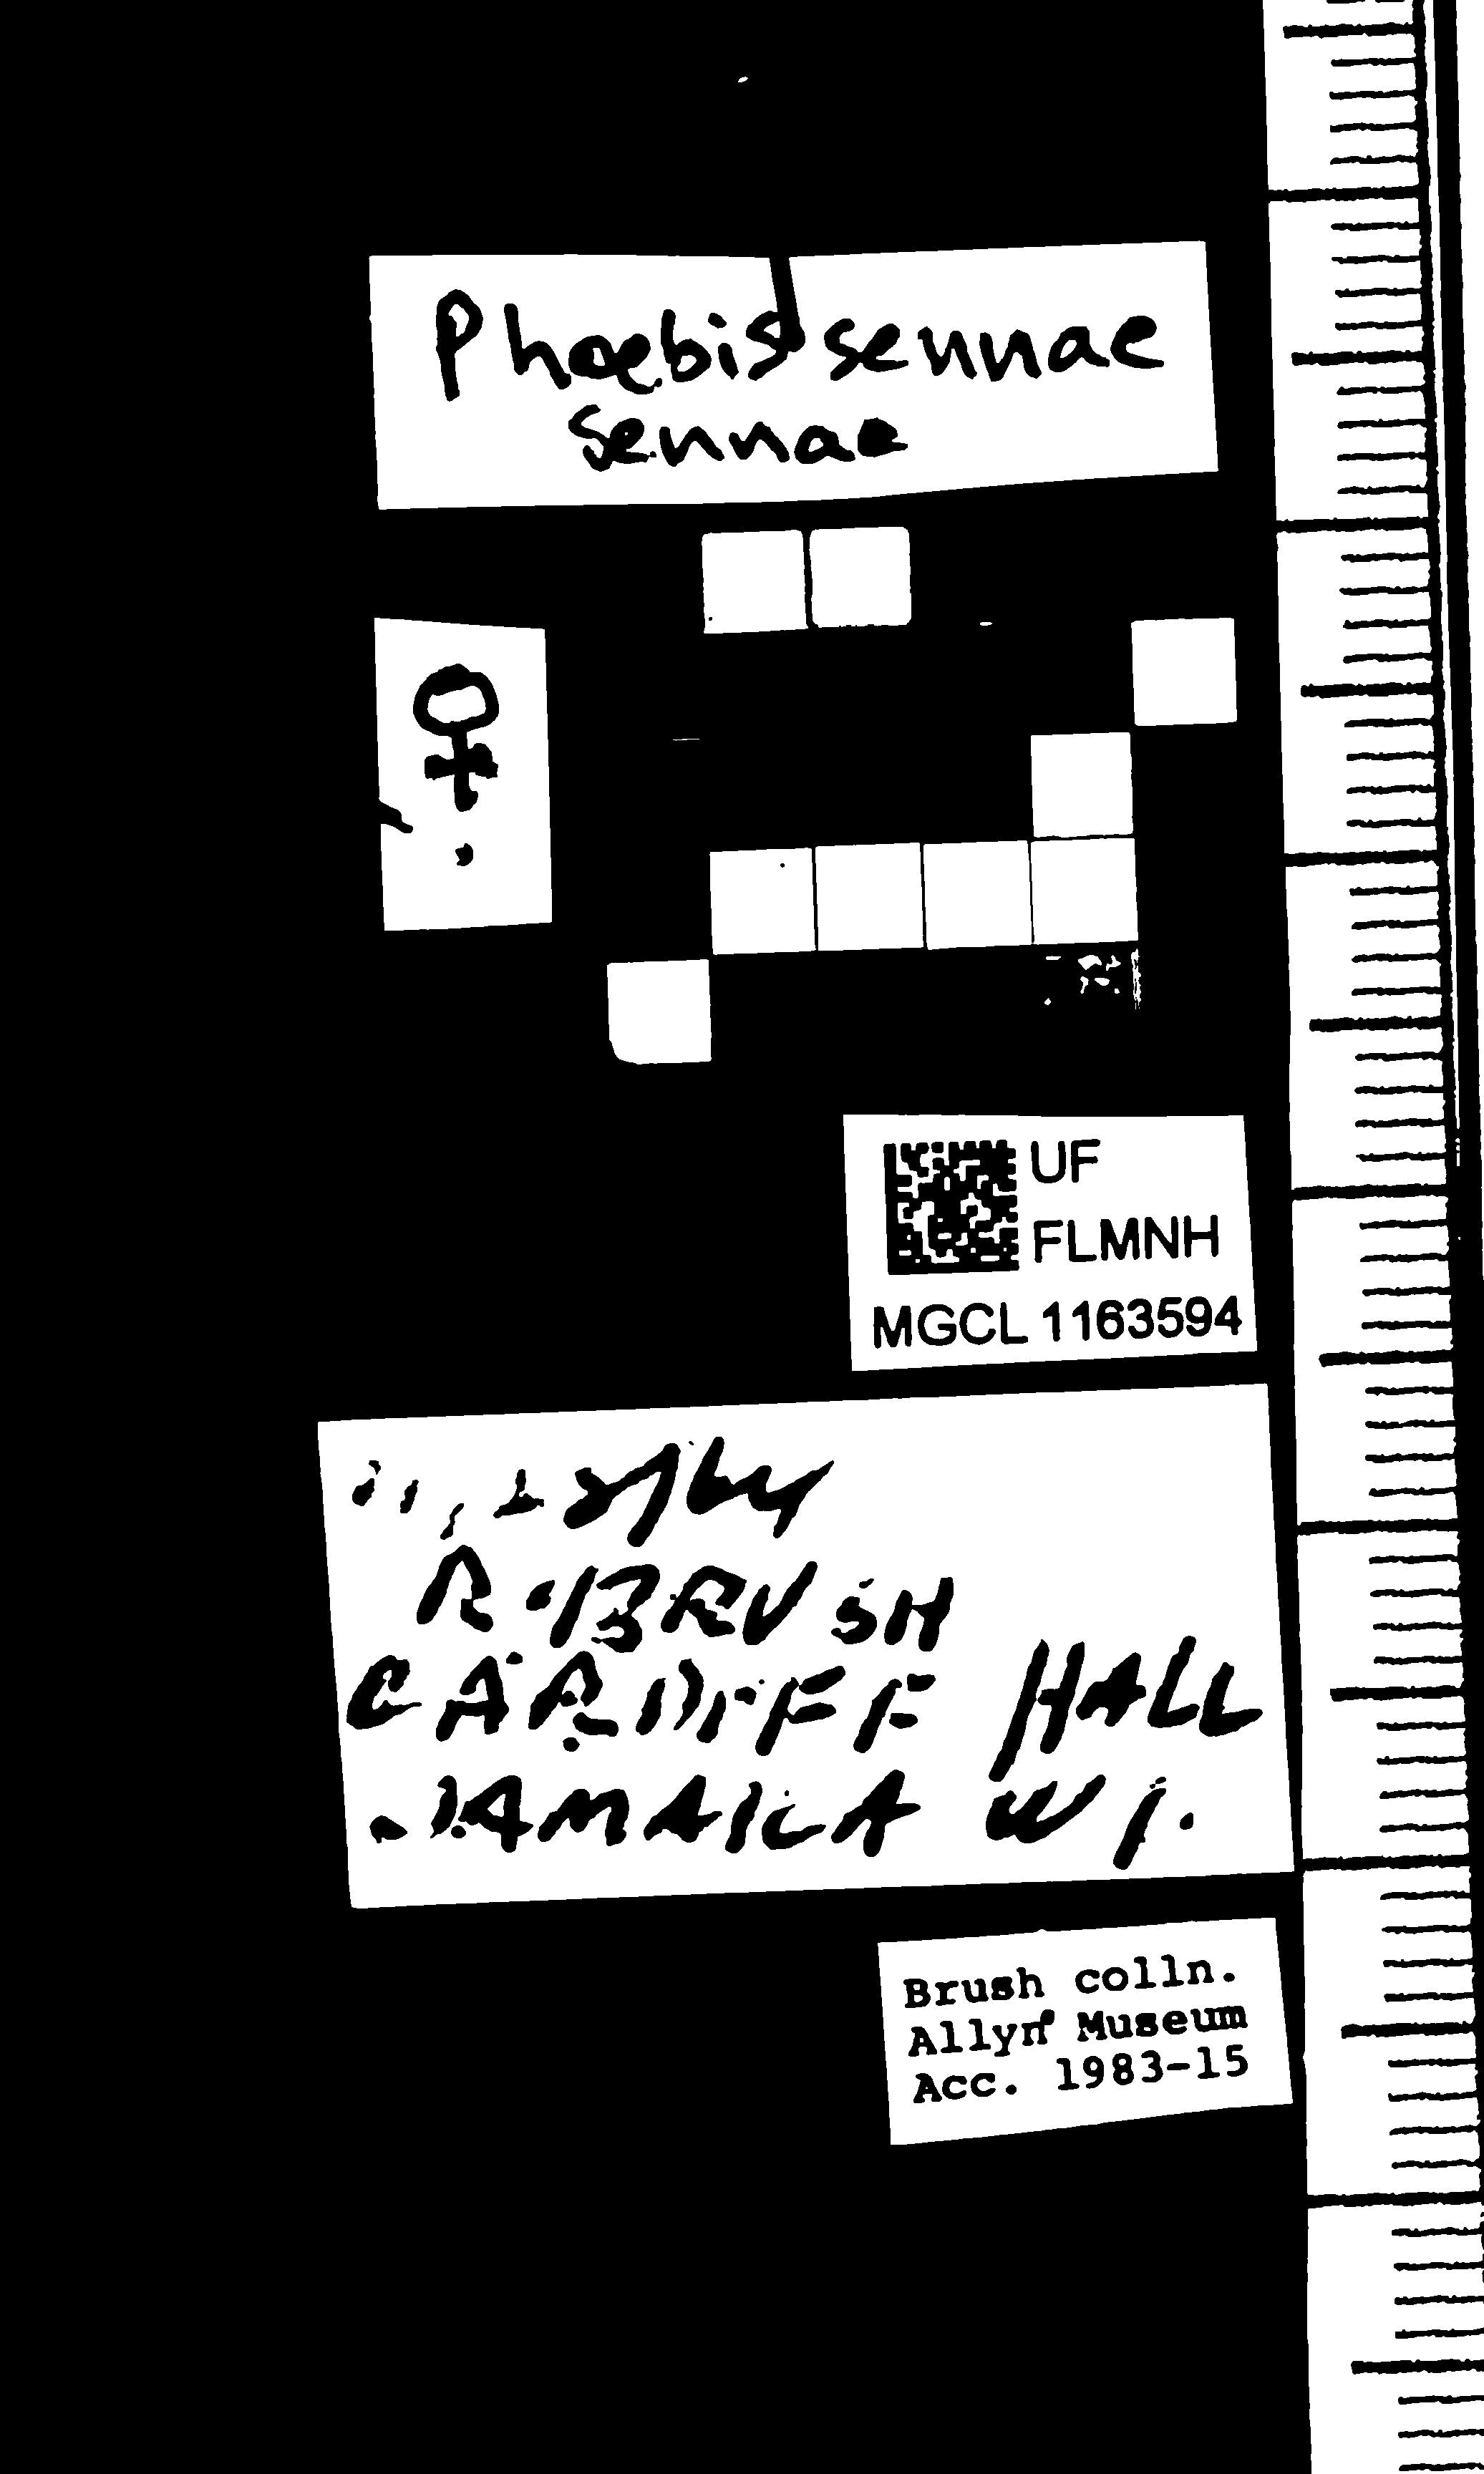 Phoebis sennae
sennae
♀
UF
FLMNH
MGCL 1163594
R. BRUSH
CARDIFF HALL
JAMAICA W I.
Brush colln.
Allyn Museum
Acc. 1983-15